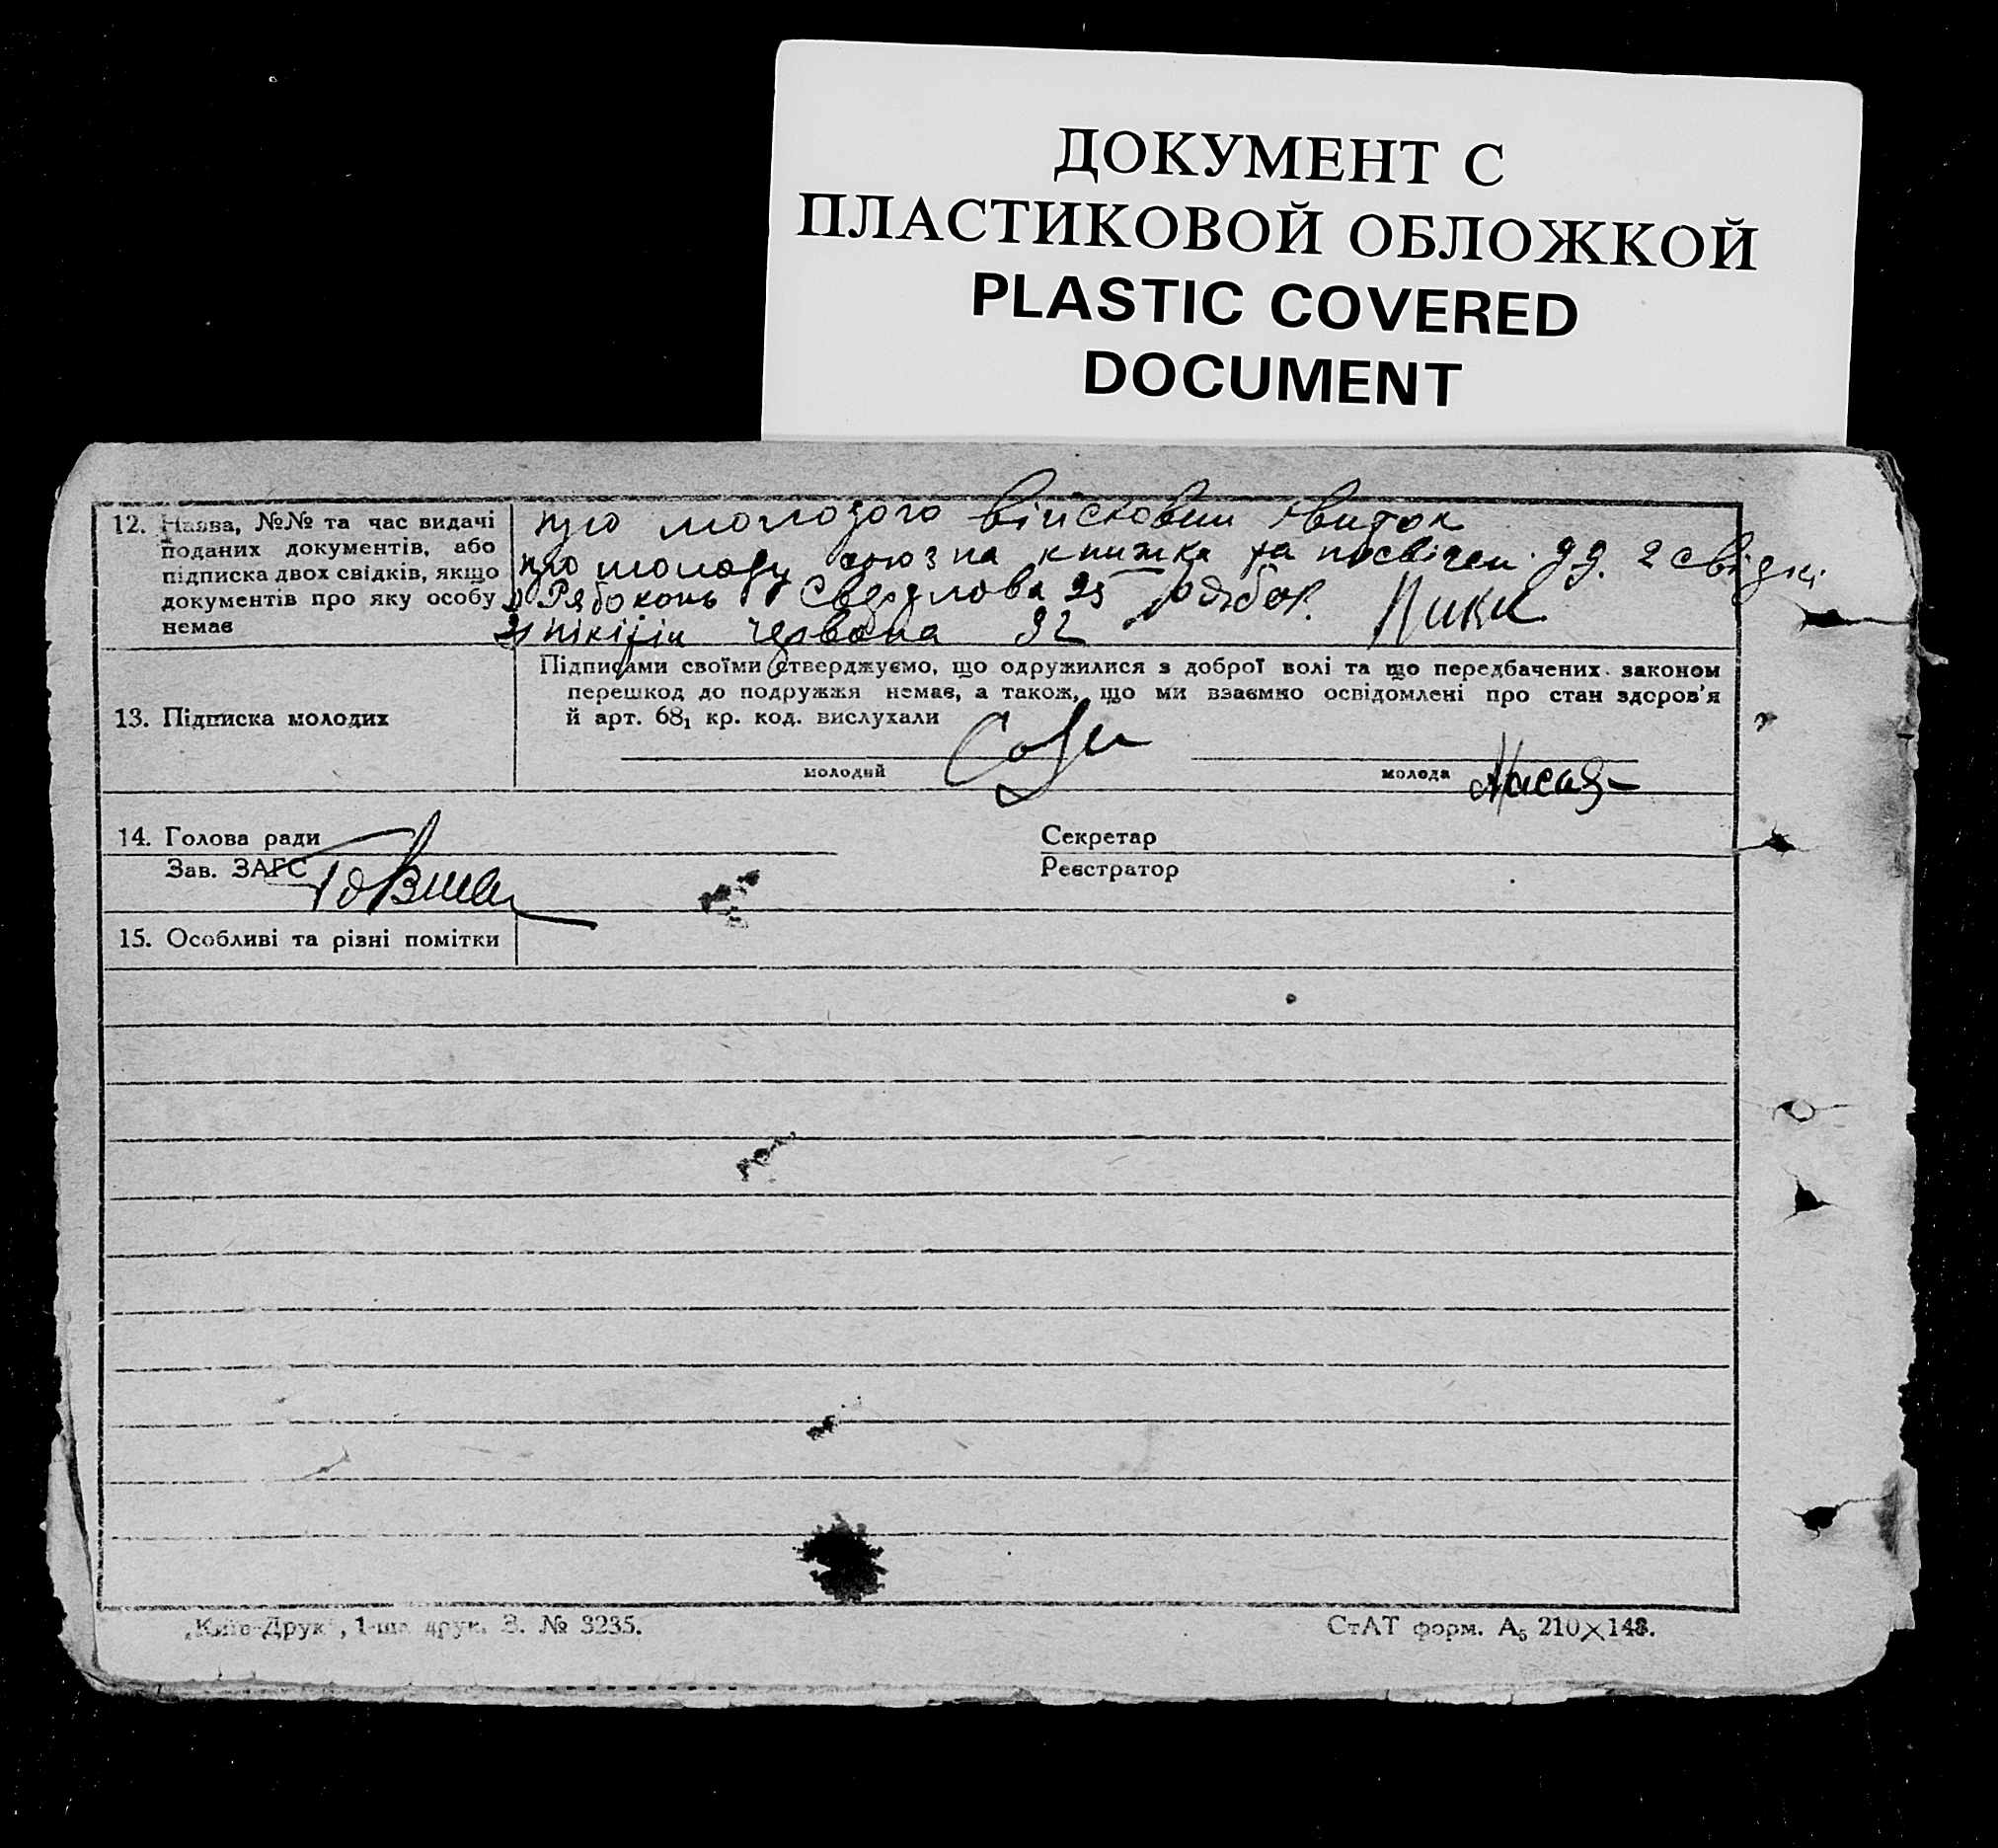 ДОКУМЕНТ С
ПЛАСТИКОВОЙ ОБЛОЖКОЙ
PLASTIC COVERED
DOCUMENT
12. Назва, №№ та час видачі
поданих документів, або
підписка двох свідків, якщо
документів про яку особу
немає
про молодого військовий квиток
про молоду союзна книжка та посвічен. 2 свідки
1) Рябоконь Свердлова 25
2) Нікітін червона 92
13. Підписка молодих
Підписами своїми стверджуємо, що одружилися з доброї волі та що передбачених законом
перешкод до подружжя немає, а також, що ми взаємно освідомлені про стан здоров'я
й арт. 68₁ кр. код. вислухали
молодий
молода
14. Голова ради
Секретар
Зав. ЗАГС
Реєстратор
15. Особливі та різні помітки
„Київ-Друк", 1-ша друк. З. № 3235.
СтАТ форм. А₅ 210×148.